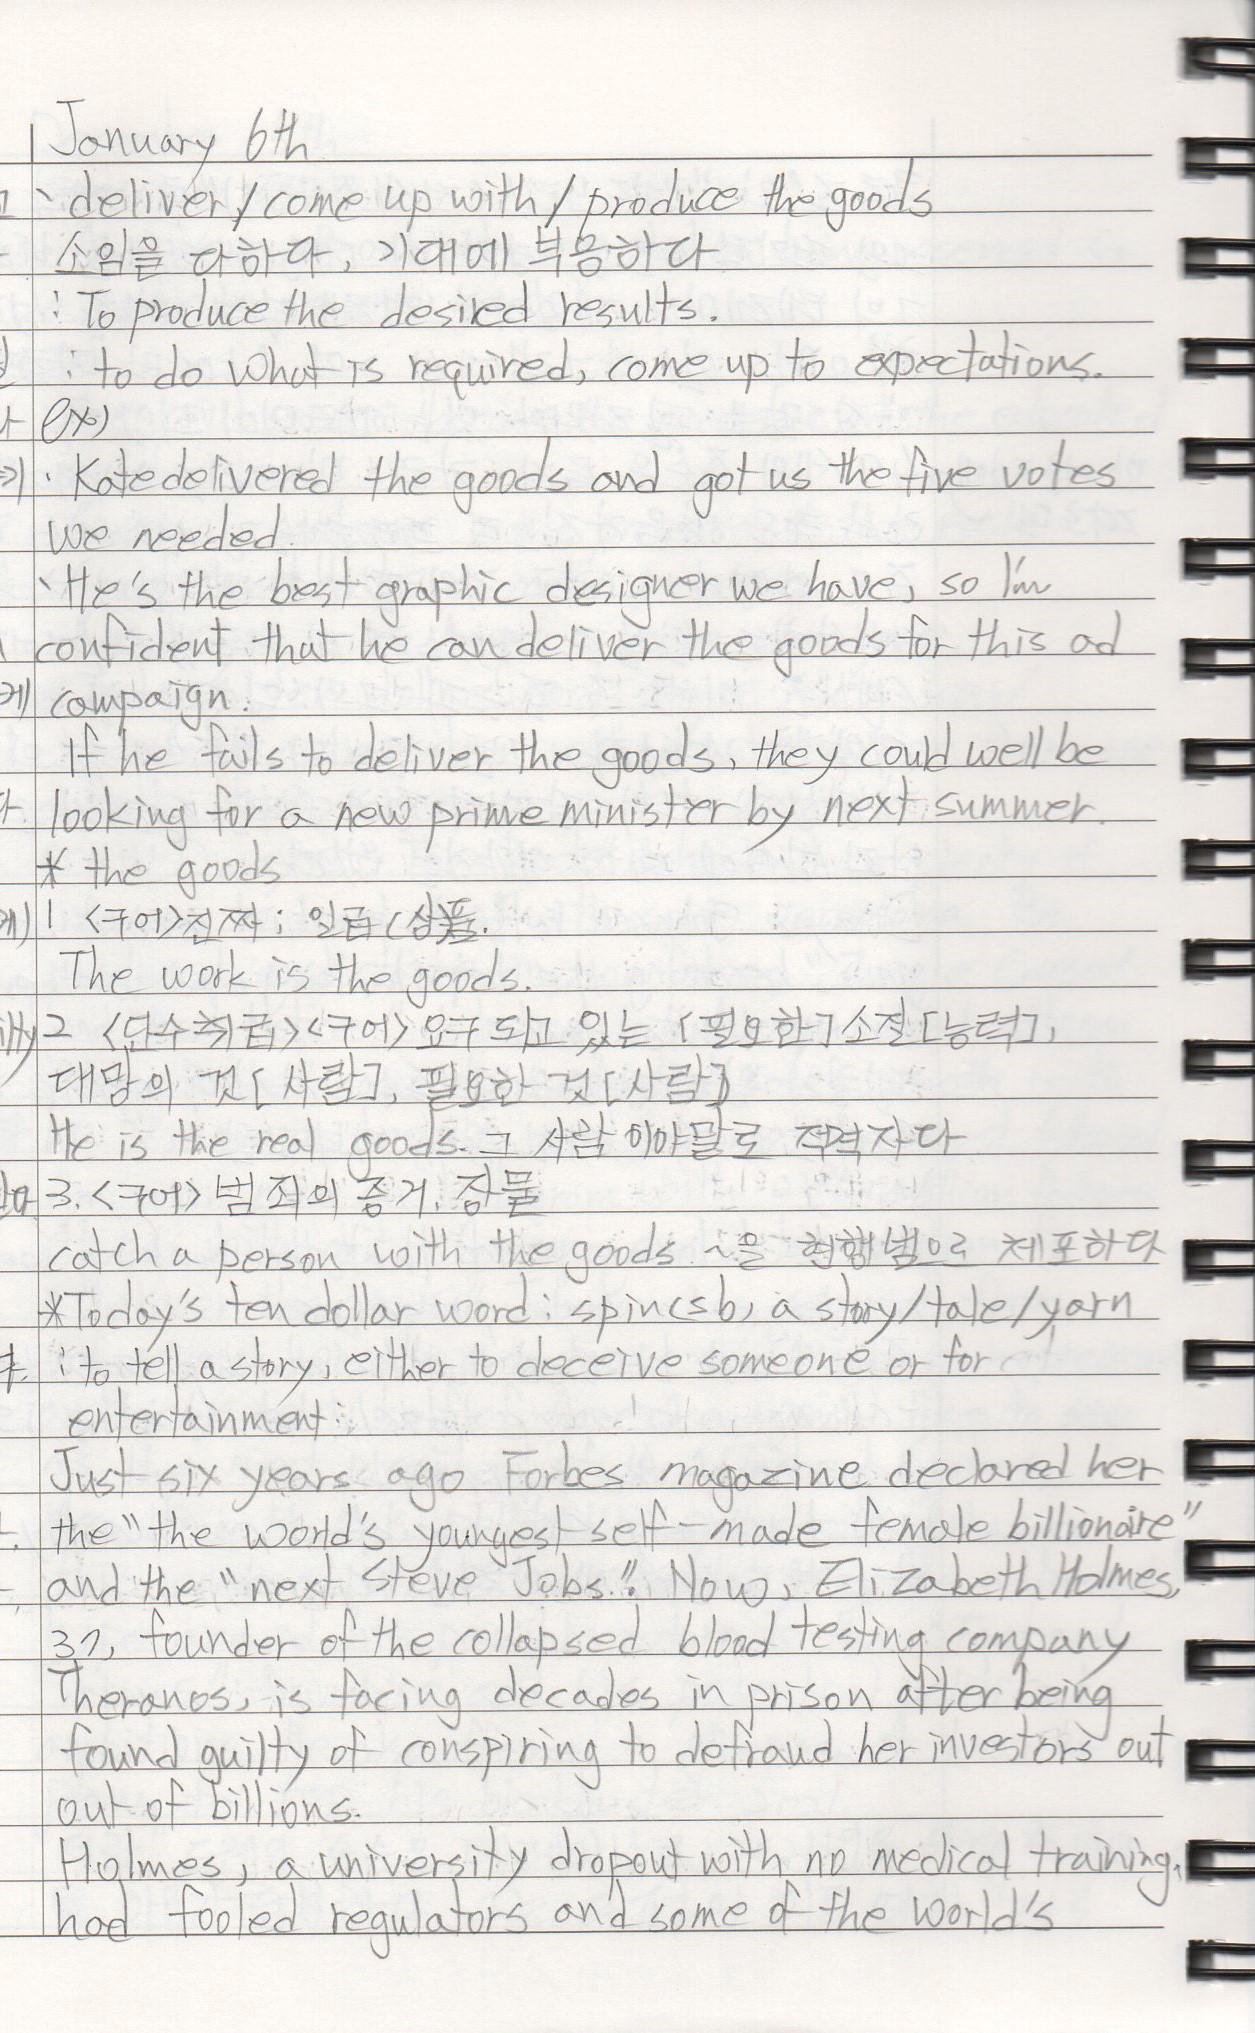 January 6th
` deliver/come up with/produce the goods
소임을 다하다, 기대에 부응하다
: To produce the desired results.
: to do what is required, come up to expectations.
ex)
· Kate delivered the goods and got us the five votes
we needed
` He's the best graphic designer we have, so I'm
confident that he can deliver the goods for this ad
campaign.
If he fails to deliver the goods, they could well be
looking for a new prime minister by next summer.
* the goods
1 <구어>진짜; 일급(상품.
The work is the goods.
2 <단수취급><구어> 요구되고 있는 [필요한] 소질[능력],
대망의 것[사람], 필요한 것[사람]
He is the real goods. 그 사람이야말로 적격자다
3. <구어> 범죄의 증거, 장물
catch a person with the goods ~을 현행범으로 체포하다
*Today's ten dollar word: spin(sb) a story/tale/yarn
: to tell a story, either to deceive someone or for
entertainment:
Just six years ago Forbes magazine declared her
the "the world's youngest self-made female billionaire"
and the "next Steve Jobs." Now, Elizabeth Holmes,
37, founder of the collapsed blood testing company
Theranos, is facing decades in prison after being
found guilty of conspiring to defraud her investors out
out of billions.
Holmes, a university dropout with no medical training,
had fooled regulators and some of the world's